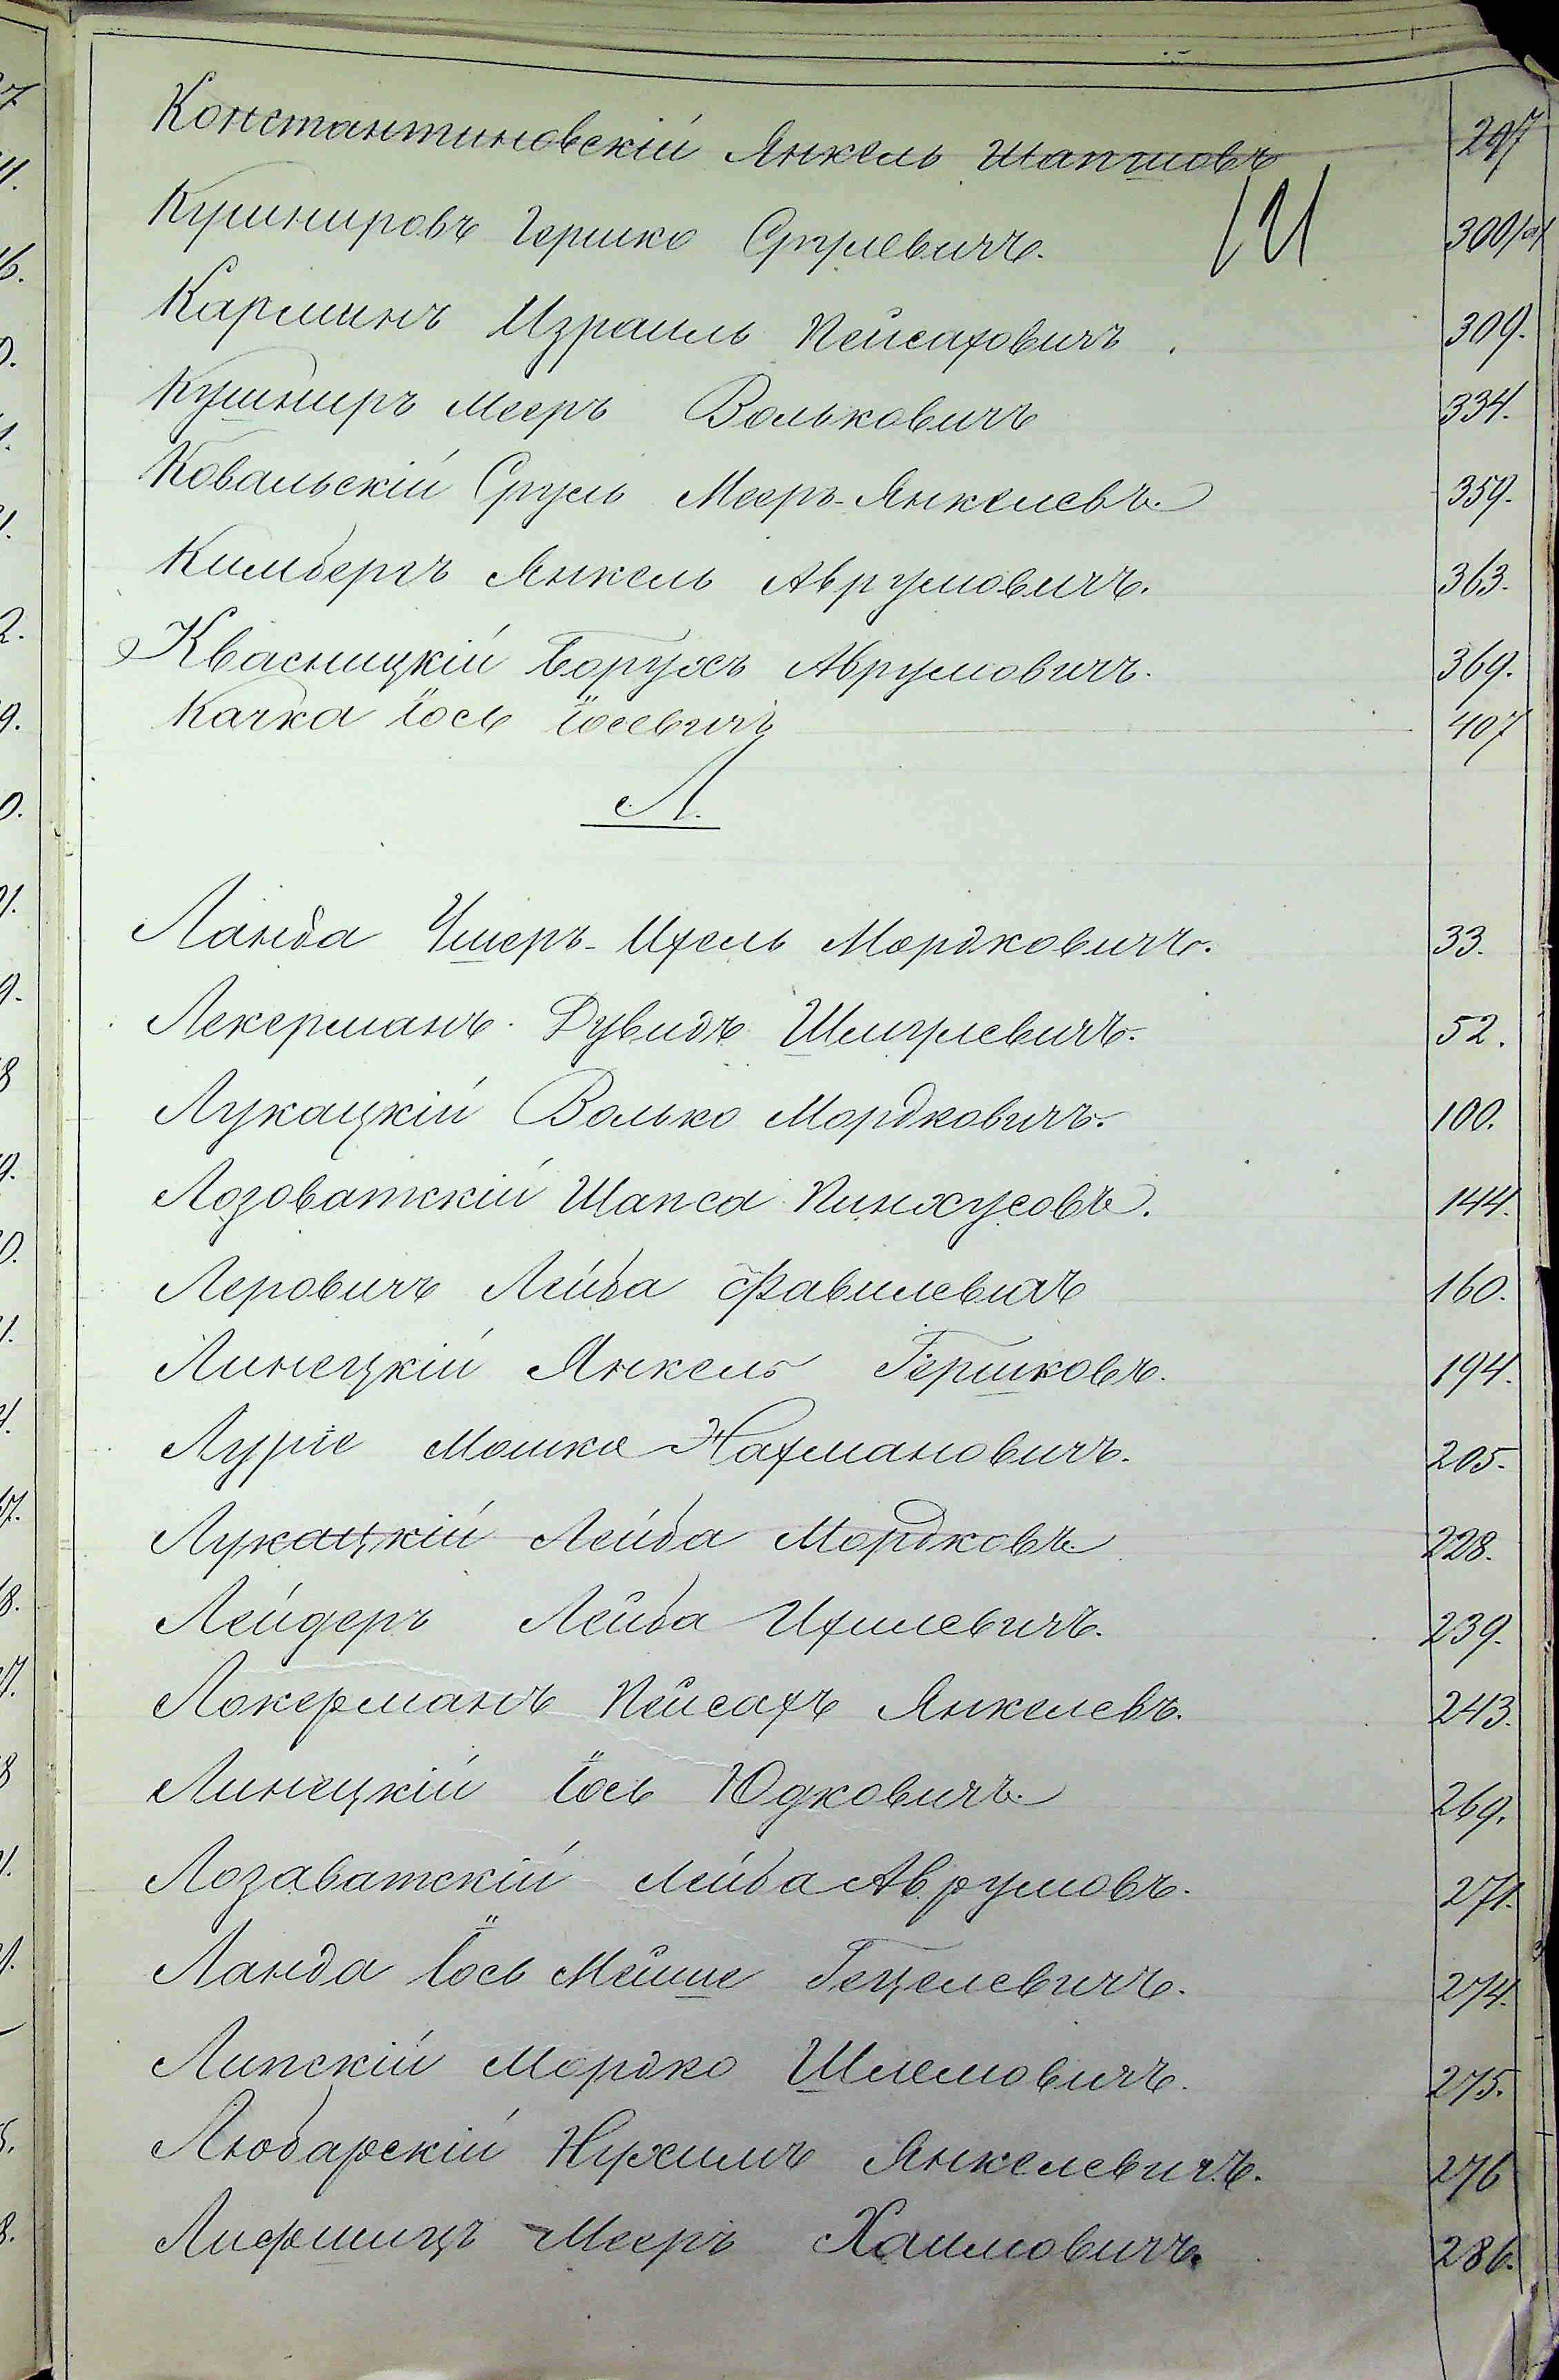 Константиновскій Янкель Шапшовъ 297
Кушнировъ Гершко Срулевичъ. 300/а/
Карминъ Израиль Пейсаховичъ. 309.
Кушниръ Мееръ Вольковичъ 334.
Ковальскій Сруль Мееръ-Янкелевъ. 359.
Кимбергъ Янкель Аврумовичъ. 363.
Квасницкій Борухъ Аврумовичъ. 369.
Качка Іось Іосевичъ 407
Л.
Ланда Ушеръ-Ихель Мордковичъ. 33.
Лекерманъ Дувидъ Шмулевичъ. 52.
Лукацкій Волько Мордковичъ. 100.
Лозоватскій Шапса Пинхусовъ. 144.
Леровичъ Лейба Фавилевичъ 160.
Линецкій Янкель Гершковъ. 194.
Луріе Мошко Нахмановичъ. 205.
Лукацкій Лейба Мордковъ 228.
Лейдеръ Лейба Ихилевичъ. 239.
Локерманъ Пейсахъ Янкелевъ. 243.
Линецкій Іось Юдковичъ. 269.
Лозаватскій Лейба Аврумовъ. 271.
Ланда Іось Мейше Гецелевичъ. 274.
Липскій Мордко Шлемовичъ. 275.
Любарскій Нухимъ Янкелевичъ. 276
Лифшицъ Мееръ Хаимовичъ. 286.